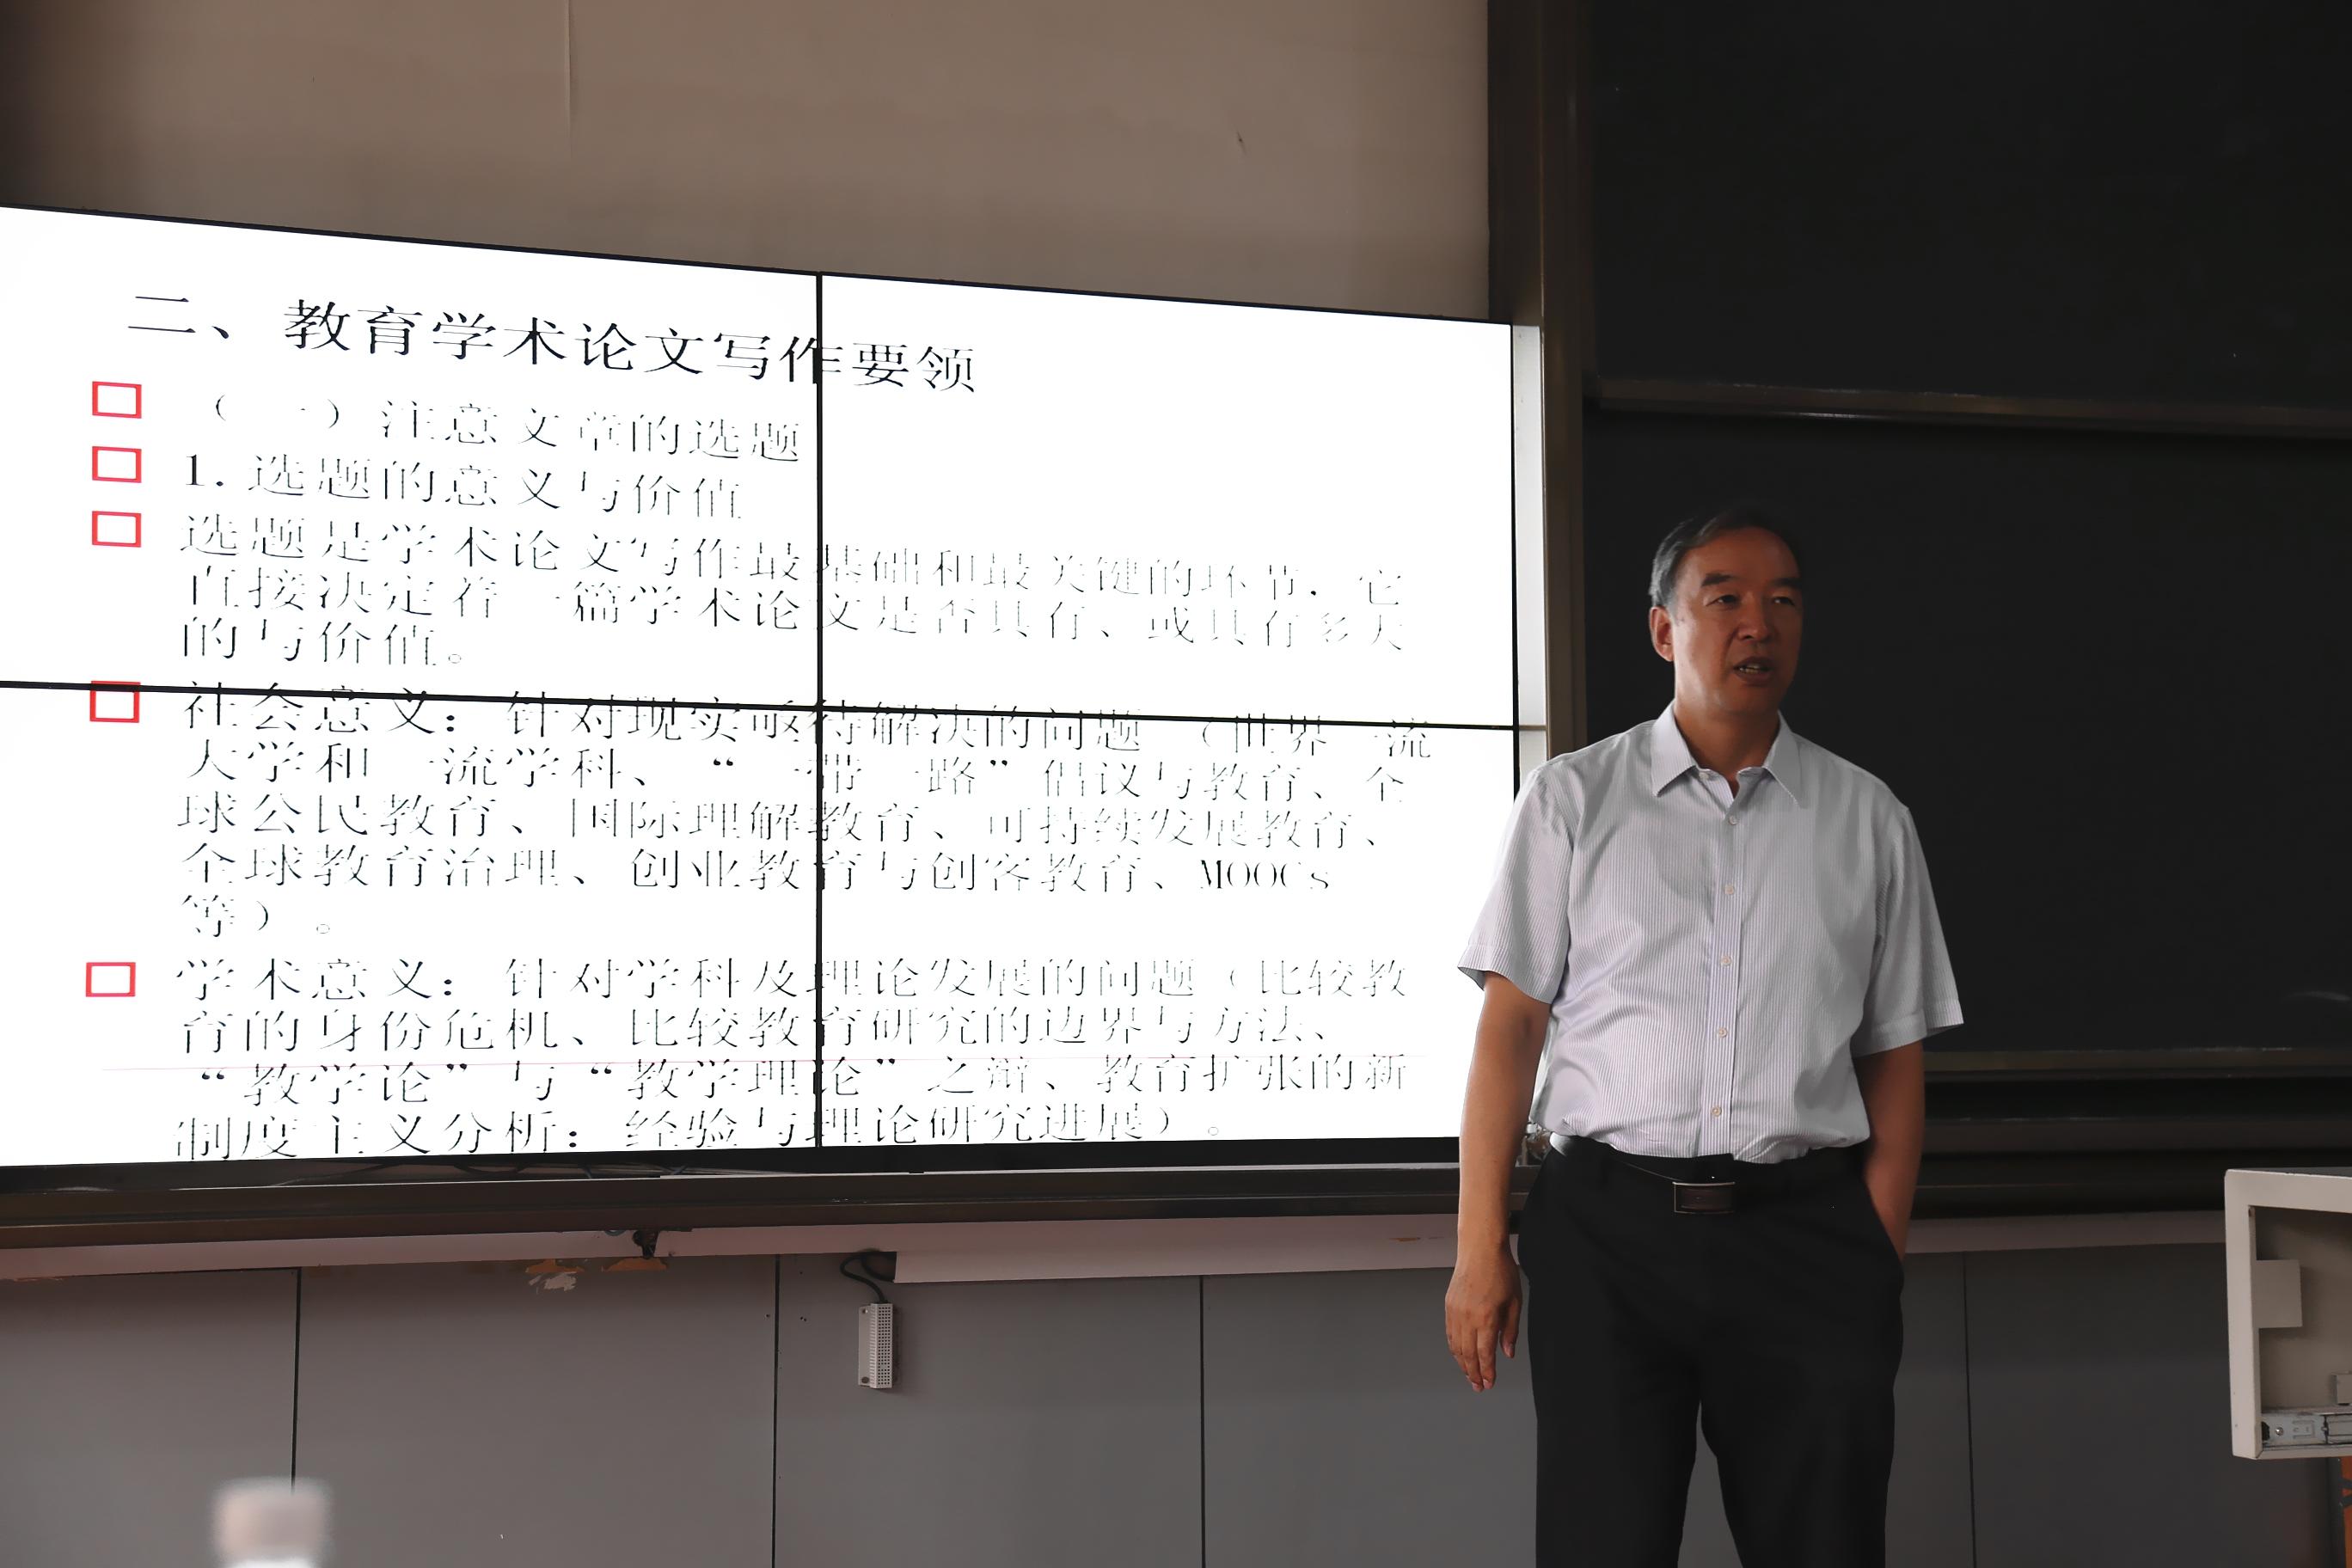 二、教育学术论文写作要领
（一）注意文章的选题
1. 选题的意义与价值
选题是学术论文写作最基础和最关键的环节，它
直接决定着一篇学术论文是否具有、或具有多大
的与价值。
社会意义：针对现实亟待解决的问题（世界一流
大学和一流学科、“一带一路”倡议与教育、全
球公民教育、国际理解教育、可持续发展教育、
全球教育治理、创业教育与创客教育、MOOCs
等）。
学术意义：针对学科及理论发展的问题（比较教
育的身份危机、比较教育研究的边界与方法、
“教学论”与“教学理论”之辩、教育扩张的新
制度主义分析：经验与理论研究进展）。